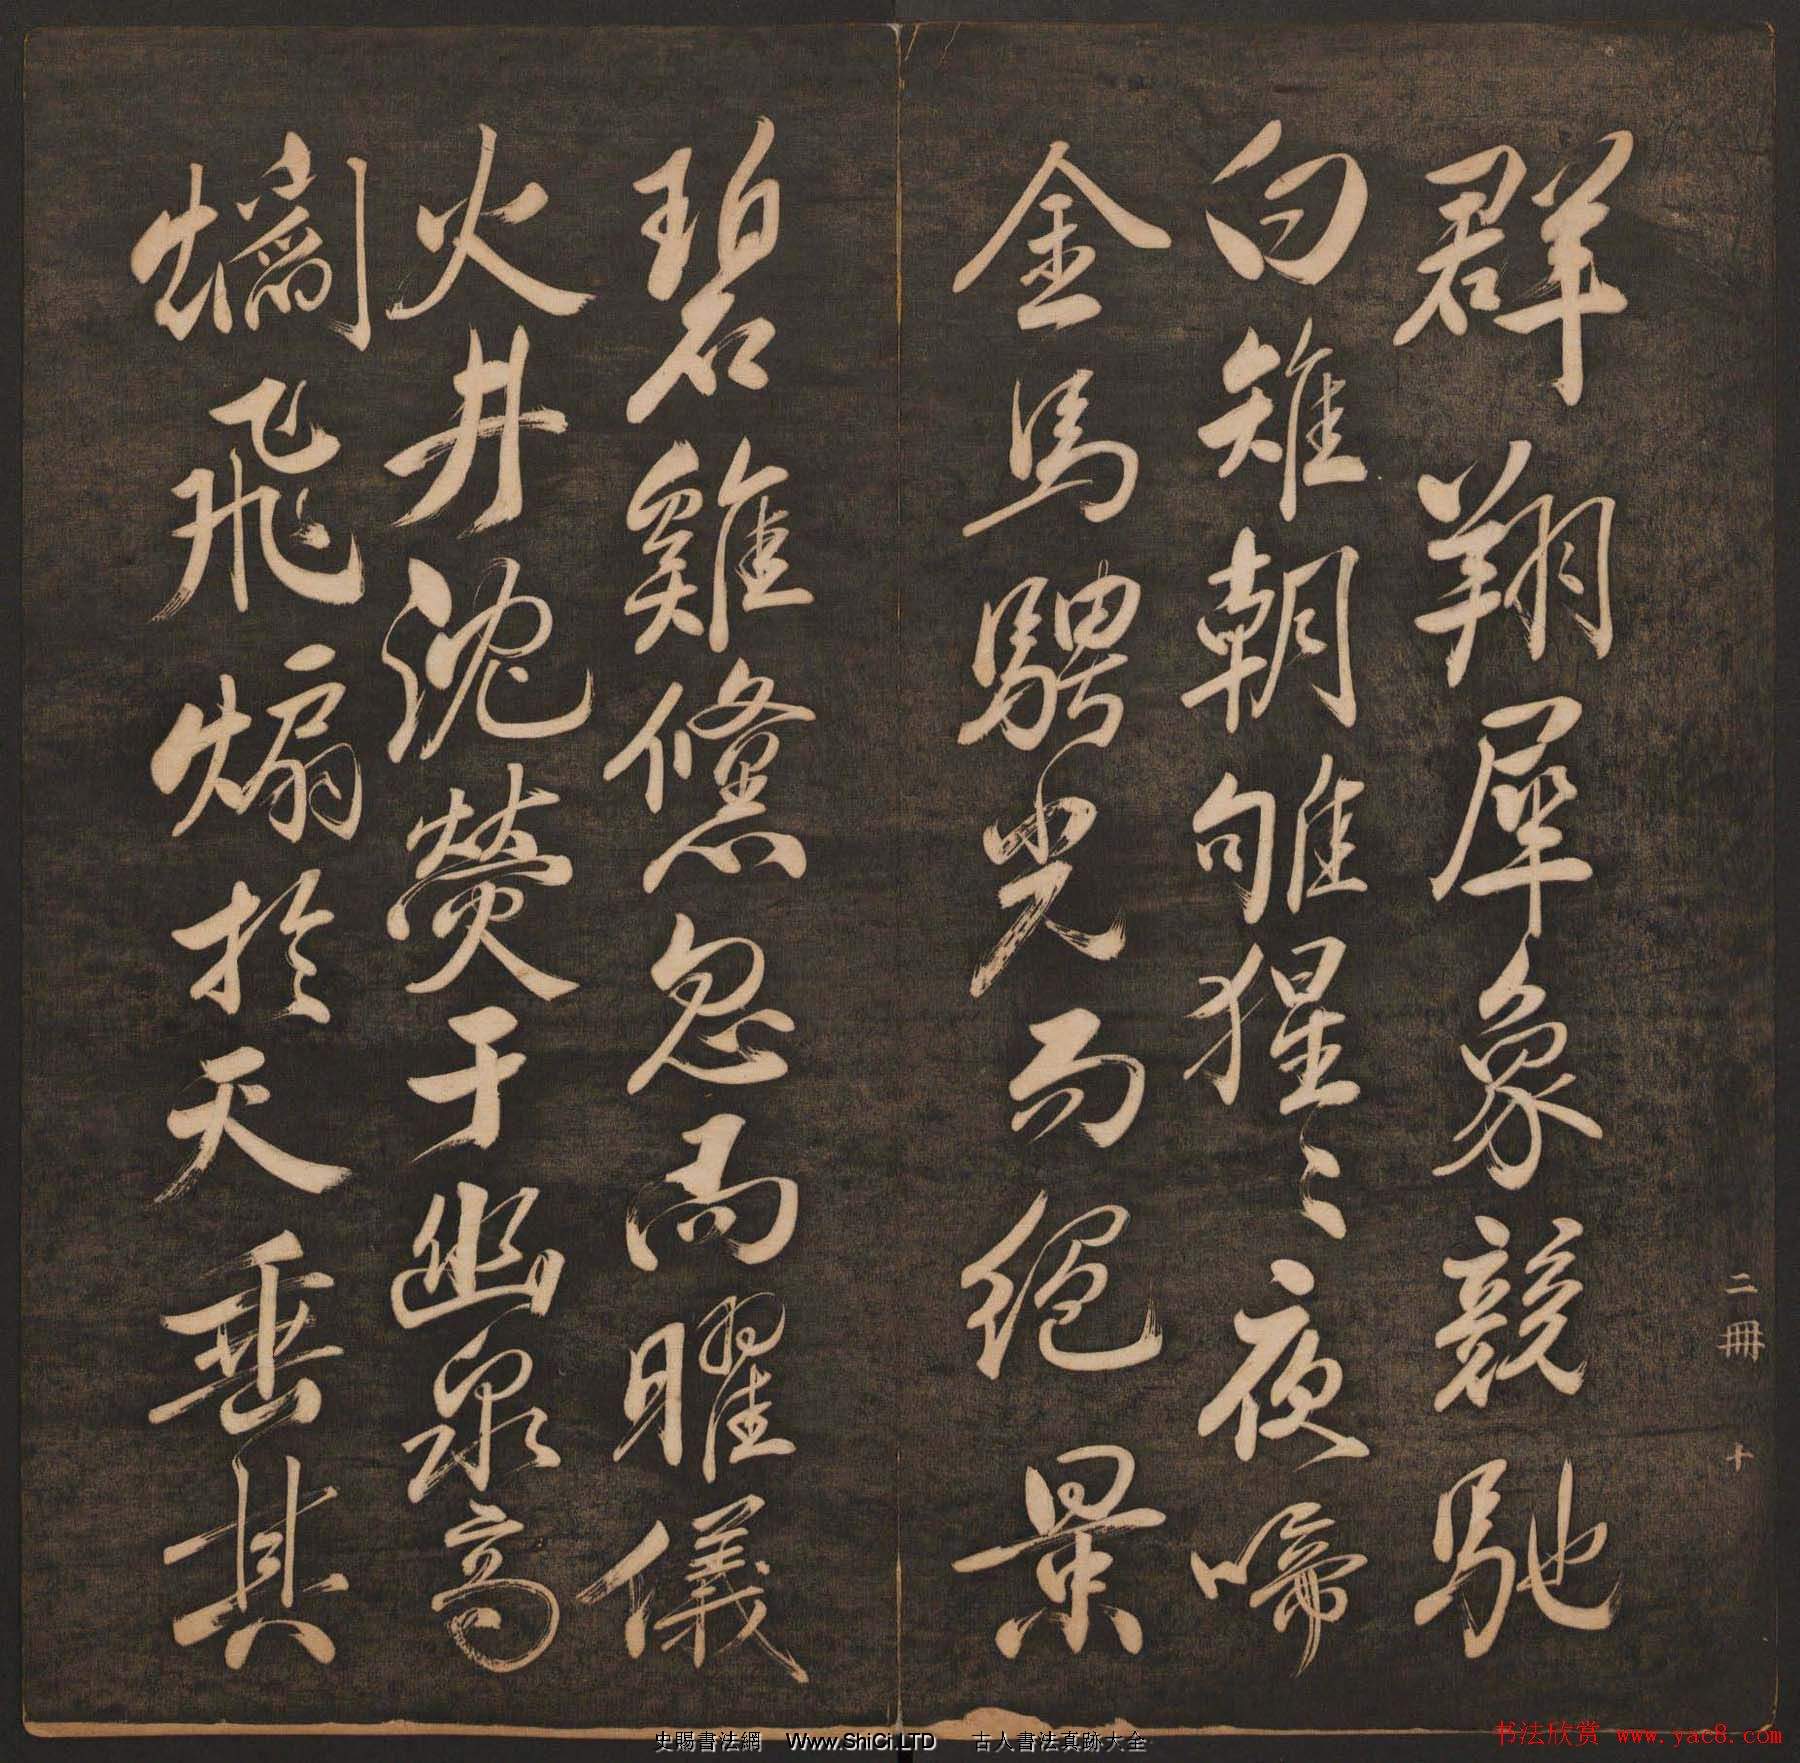 群翔犀象競馳
白雉朝雊猩〻夜啼
金馬騁光而絕景
碧雞儵忽而曜儀
火井沈熒于幽泉高
爓飛煽於天垂其
二冊 十
史賜書法網 Www.ShiCi.LTD 古人書法真跡大全
书法欣赏 www.yac8.com